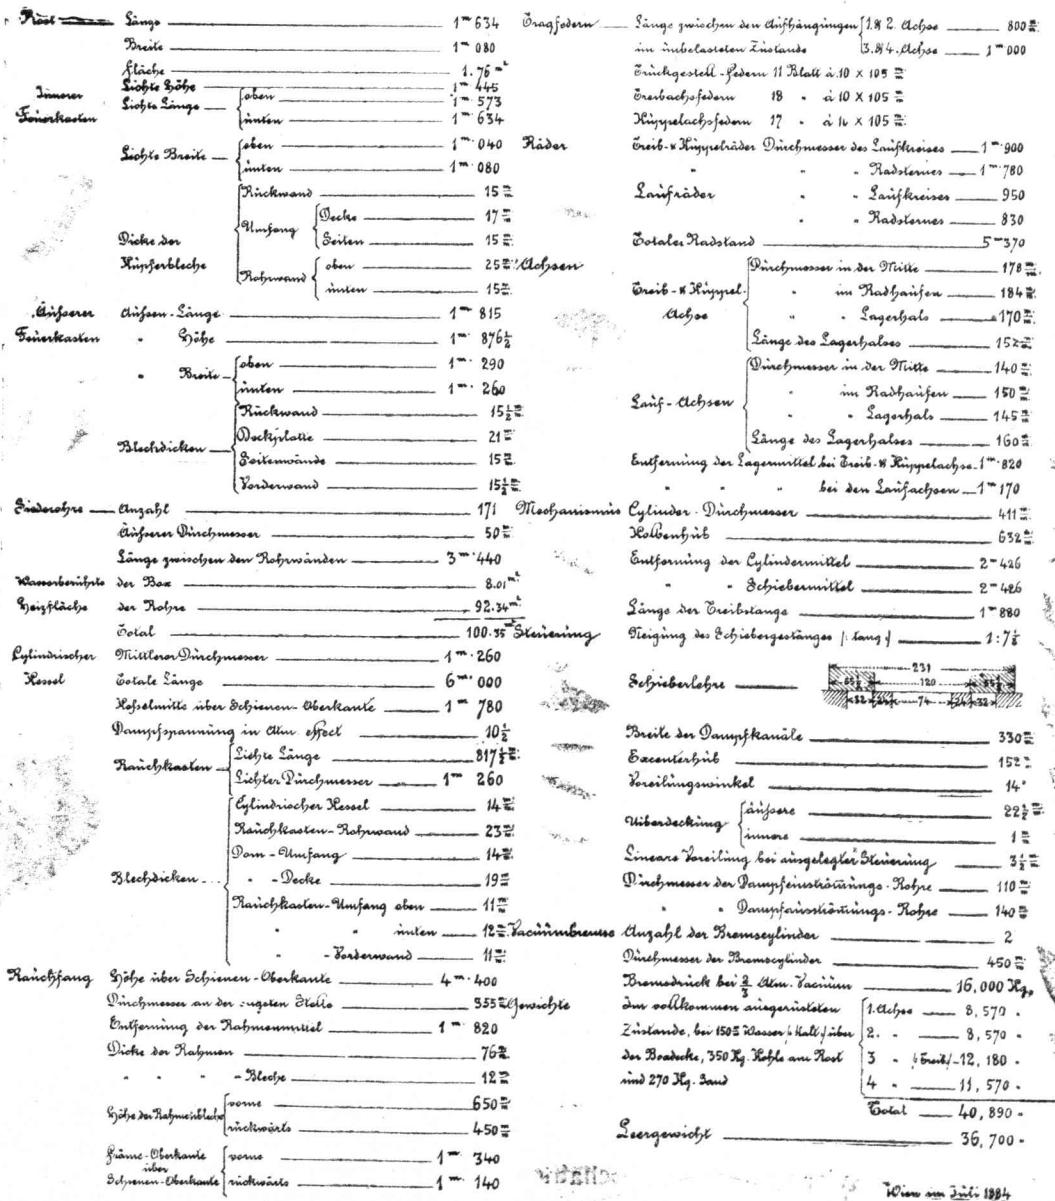 Rost Länge 1 m 634
Breite 1 m 080
Fläche 1.76 m²
Innerer Lichte Höhe 1 m 445
Feuerkasten Lichte Länge oben 1 m 573
unten 1 m 634
Lichte Breite oben 1 m 040
unten 1 m 080
Dicke der Kupferbleche Rückwand 15 m/m
Umfang Decke 17 m/m
Seiten 15 m/m
Rohrwand oben 25 m/m
unten 15 m/m
Äußerer Außen-Länge 1 m 815
Feuerkasten " Höhe 1 m 876½
" Breite oben 1 m 290
unten 1 m 260
Blechdicken Rückwand 15½ m/m
Deckplatte 21 m/m
Seitenwände 15 m/m
Vorderwand 15½ m/m
Siederohre Anzahl 171
Äußerer Dürchmesser 50 m/m
Länge zwischen den Rohrwänden 3 m 440
Wasserberührte der Box 8.01 m²
Heizfläche der Rohre 92.34 m²
Total 100.35 m²
Cylindrischer Mittlerer Dürchmesser 1 m 260
Kessel Totale Länge 6 m 000
Kesselmitte über Schienen-Oberkante 1 m 780
Dampfspannung in Atm. effect 10½
Rauchkasten Lichte Länge 817½ m/m
Lichter Dürchmesser 1 m 260
Blechdicken Cylindrischer Kessel 14 m/m
Rauchkasten-Rohrwand 23 m/m
Dom-Umfang 14 m/m
" -Decke 19 m/m
Rauchkasten-Umfang oben 11 m/m
" " unten 12 m/m
" -Vorderwand 11 m/m
Rauchfang Höhe über Schienen-Oberkante 4 m 400
Dürchmesser an der engsten Stelle 355 m/m
Entfernung der Rahmenmittel 1 m 820
Dicke der Rahmen 76 m/m
" " " -Bleche 12 m/m
Höhe der Rahmenbleche vorne 650 m/m
rückwärts 450 m/m
Frame-Oberkante über Schienen-Oberkante vorne 1 m 340
rückwärts 1 m 140
Tragfedern Länge zwischen den Aufhängungen 1. & 2. Achse 800 m/m
im unbelasteten Zustande 3. & 4. Achse 1 m 000
Truckgestell-Federn 11 Blatt à 10 × 105 m/m
Treibachsfedern 18 " à 10 × 105 m/m
Kuppelachsfedern 17 " à × 105 m/m
Räder Treib- & Kuppelräder Dürchmesser des Laufkreises 1 m 900
" " Radsternes 1 m 780
Laufräder " " Laufkreises 950
" " Radsternes 830
Totaler Radstand 5 m 370
Achsen Treib- & Kuppel-Achse Dürchmesser in der Mitte 178 m/m
" im Radhaufen 184 m/m
" " Lagerhals 170 m/m
Länge des Lagerhalses 152 m/m
Lauf-Achsen Dürchmesser in der Mitte 140 m/m
" im Radhaufen 150 m/m
" " Lagerhals 145 m/m
Länge des Lagerhalses 160 m/m
Entfernung der Lagermittel bei Treib- & Kuppelachse 1 m 820
" " " bei den Laufachsen 1 m 170
Mechanismus Cylinder-Dürchmesser 411 m/m
Kolbenhub 632 m/m
Entfernung der Cylindermittel 2 m 426
" " Schiebermittel 2 m 426
Länge der Treibstange 1 m 880
Steuerung Neigung des Schiebergestänges /: tang :/ 1:7½
Schieberlehre
231
55½ 120 55½
32 24 74 24 32
Breite der Dampfkanäle 330 m/m
Excenterhub 152 m/m
Voreilungswinkel 14°
Überdeckung äußere 22½ m/m
innere 1 m/m
Lineare Voreilung bei ausgelegter Steuerung 3½ m/m
Dürchmesser der Dampfeinströmungs-Rohre 110 m/m
" " Dampfausströmungs-Rohre 140 m/m
Vacuumbremse Anzahl der Bremscylinder 2
Dürchmesser der Bremscylinder 450 m/m
Bremsdruck bei ⅔ Atm. Vacuum 16,000 Kg.
Gewichte Im vollkommen ausgerüsteten 1. Achse 8,570 "
Zustande, bei 150 m/m Wasser /: kalt :/ über 2. " 8,570 "
der Boxdecke, 350 Kg. Kohle am Rost 3 " /: Treib :/ 12,180 "
und 270 Kg. Sand 4 " 11,570 "
Total 40,890 "
Leergewicht 36,700 "
Wien im Juli 1884